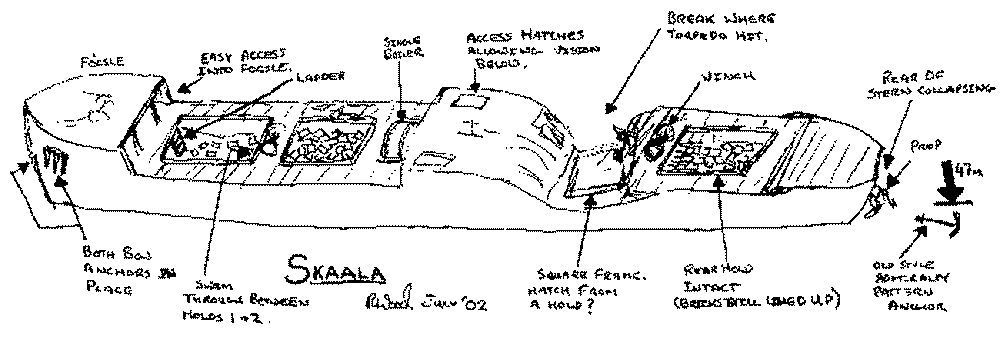 FOCSLE
EASY ACCESS
INTO FOCSLE.
LADDER
SINGLE
BOILER
ACCESS HATCHES
ALLOWING VISION
BELOW.
BREAK WHERE
TORPEDO HIT.
WINCH
REAR OF
STERN COLLAPSING
PROP
47m
BOTH BOW
ANCHORS IN
PLACE
SWIM
THROUGH BETWEEN
HOLDS 1+2.
SKAALA
June '02
SQUARE FRAME.
HATCH FROM
A HOLD?
REAR HOLD
INTACT
(BRICKS STILL LINED UP)
OLD STYLE
ADMIRALTY
PATTERN
ANCHOR.